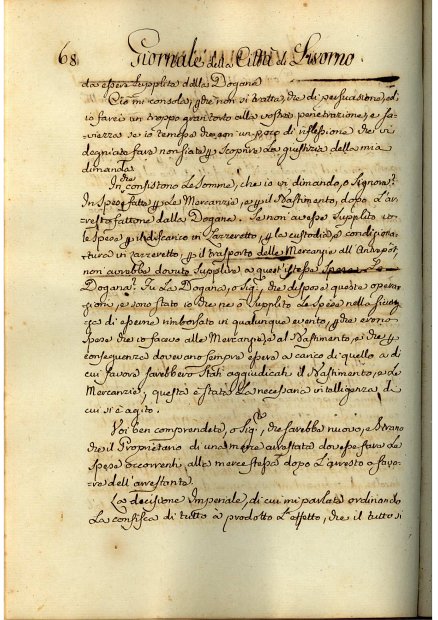 68 Giornale della Città di Livorno.
da esser supplita dalla Dogana
Ciò mi consola, p che non si tratta, che di persuasione, ed
io farei un troppo gran torto alla vostra penetrazione, e sa-
viezza se io temessi che con un poco di riflessione che vi
degniate fare non siate p scoprire la giustizia della mia
dimanda.
In che consistono le somme, che io vi dimando, o Signori?
In spese fatte p le Mercanzie, e p il Bastimento, dopo l'ar-
resto fattone dalla Dogana. Se non avesse supplito
spese p il discarico in Lazzeretto, p la custodia, e condizio
tura in Lazzeretto, p il trasporto delle Mercanzie all'
non avrebbe dovuto supplire a queste stesse Spese La
Dogana? Fu La Dogana, o Sig.i, che dispose queste opera
zioni, e sono stato io che ne ò supplito le Spese nella fidu
za di esserne rimborsato in qualunque evento, p che erono
Spese che io facevo alle Mercanzie, e al Bastimento, e che p
conseguenza dovevano sempre essere a carico di quello a di
cui favore sarebbero stati aggiudicati il Bastimento, e le
Mercanzie; questa è stata la necessaria intelligenza, di
cui si è agito.
Voi ben comprendete, o Sig.i, che sarebbe nuovo, e strano
che il Proprietario di una merce arrestata dovesse fare le
spese occorrenti alla merce stessa dopo l'arresto a favo
re dell'arrestante.
La decisione Imperiale, di cui mi parlate ordinando
la confisca di tutto à prodotto l'effetto, che il tutto si